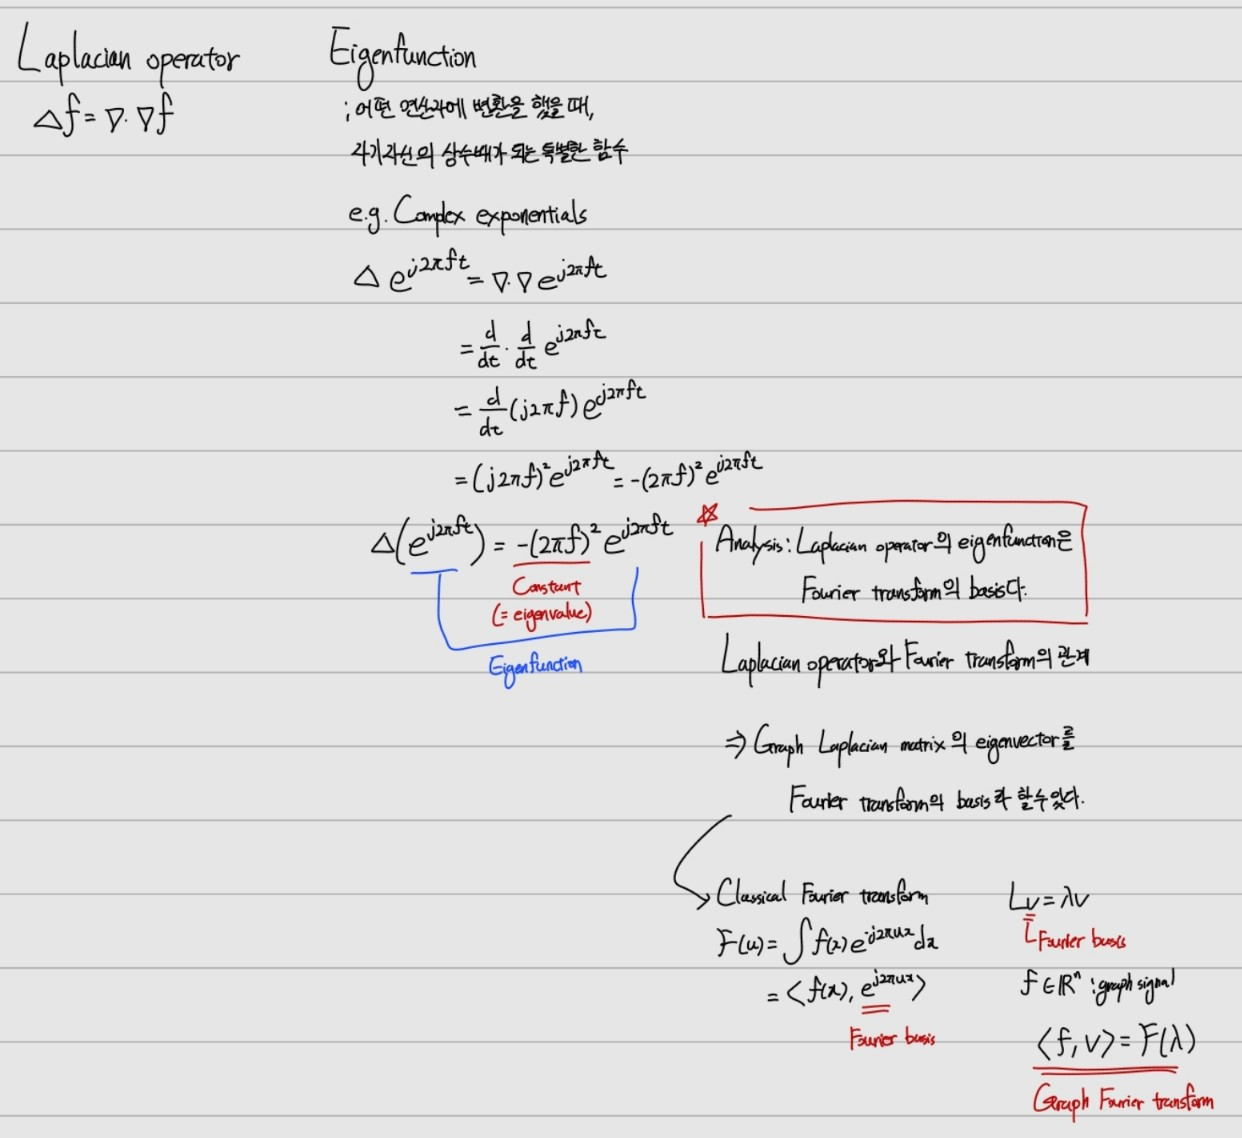 Laplacian operator
Δf = ∇·∇f
Eigenfunction
; 어떤 연산자에 변환을 했을 때,
자기자신의 상수배가 되는 특별한 함수
e.g. Complex exponentials
Δ e^{j2πft} = ∇·∇ e^{j2πft}
= d/dt · d/dt e^{j2πft}
= d/dt (j2πf) e^{j2πft}
= (j2πf)² e^{j2πft} = -(2πf)² e^{j2πft}
Δ(e^{j2πft}) = -(2πf)² e^{j2πft}
Constant
(= eigenvalue)
Eigenfunction
☆ Analysis: Laplacian operator의 eigenfunction은
Fourier transform의 basis다.
Laplacian operator와 Fourier transform의 관계
⇒ Graph Laplacian matrix의 eigenvector를
Fourier transform의 basis라 할 수 있다.
Classical Fourier transform
F(u) = ∫ f(x) e^{-j2πux} dx
= <f(x), e^{j2πux}>
Fourier basis
Lv = λv
Fourier basis
f ∈ ℝⁿ : graph signal
<f, v> = F(λ)
Graph Fourier transform